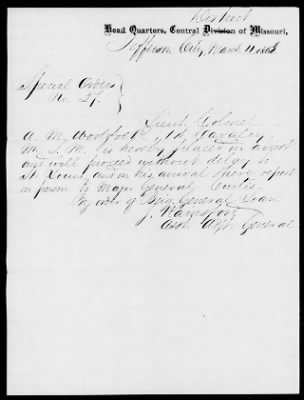 District
Head Quarters, Central Division of Missouri,
Jefferson City, March 11 1863
Special Orders
No. 27.
Lieut Colonel
A. M. Woolfolk, 1st Cavalry
M. S. M. is hereby placed in arrest
and will proceed without delay to
St Louis, and on his arrival there report
in person to Major General Curtis.
By order of Brig. General Loan
J. Rainsford
Asst. Adjt. General